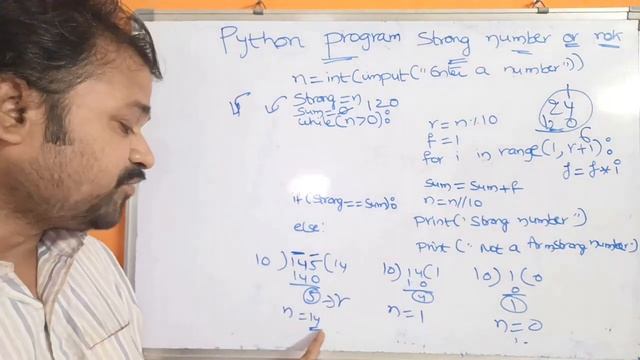 Python program Strong number or not
n=int(input("Enter a number"))
Strong=n
sum=0 120
while(n>0):
r=n%10
f=1
for i in range(1,r+1):
f=f*i
sum=sum+f
n=n//10
if(strong==sum):
print("Strong number")
else:
print("Not a Armstrong number")
1
24
120
6
10)145(14
140
5⇒r
n=14
10)14(1
10
4
n=1
10)1(0
0
1
n=0